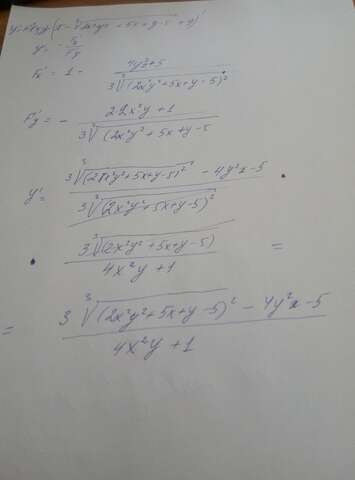 y' = - F'x / F'y
Fx' = 1 - (4y²x+5) / (3 ∛(2x²y²+5x+y-5)²)
Fy' = - (2·2x²y+1) / (3 ∛(2x²y²+5x+y-5)
y' = (3 ∛(2x²y²+5x+y-5)² - 4y²x-5) / (3 ∛(2x²y²+5x+y-5)²)
(3 ∛(2x²y²+5x+y-5)) / (4x²y+1) =
= (3 ∛(2x²y²+5x+y-5)² - 4y²x-5) / (4x²y+1)